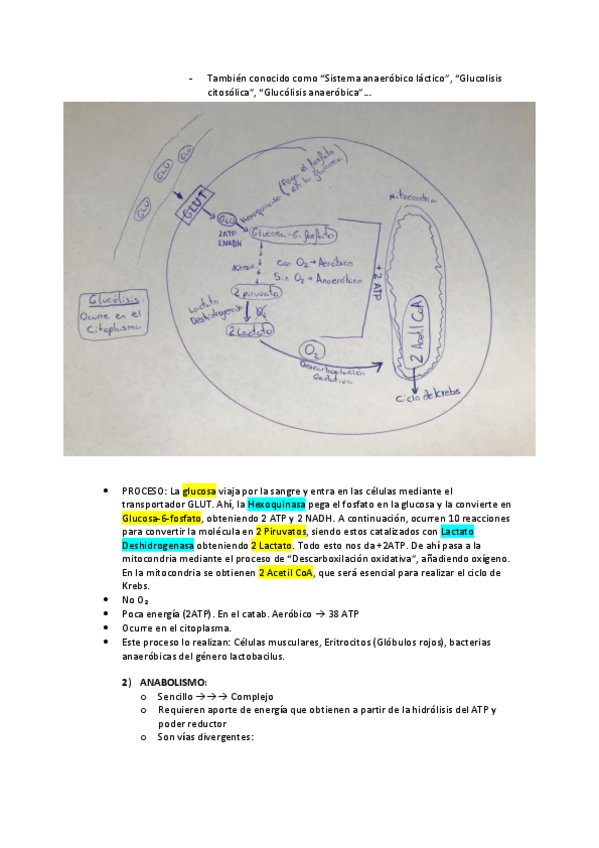 - También conocido como “Sistema anaeróbico láctico”, “Glucolisis
citosólica”, “Glucólisis anaeróbica”...
GLU
GLU
GLU
GLUT
GLU
Hexoquinasa (Pega el fosfato
en la glucosa)
2ATP
2NADH
Glucosa-6-fosfato
con O₂→Aeróbico
Sin O₂→Anaeróbico
2 piruvato
Lactato
Deshidrogenasa
O₂
2 Lactato
+2 ATP
O₂
Descarboxilación
oxidativa
Mitocondria
2 Acetil CoA
Ciclo de Krebs
Glucólisis:
Ocurre en el
Citoplasma
• PROCESO: La glucosa viaja por la sangre y entra en las células mediante el
transportador GLUT. Ahí, la Hexoquinasa pega el fosfato en la glucosa y la convierte en
Glucosa-6-fosfato, obteniendo 2 ATP y 2 NADH. A continuación, ocurren 10 reacciones
para convertir la molécula en 2 Piruvatos, siendo estos catalizados con Lactato
Deshidrogenasa obteniendo 2 Lactato. Todo esto nos da +2ATP. De ahí pasa a la
mitocondria mediante el proceso de “Descarboxilación oxidativa”, añadiendo oxígeno.
En la mitocondria se obtienen 2 Acetil CoA, que será esencial para realizar el ciclo de
Krebs.
• No O₂
• Poca energía (2ATP). En el catab. Aeróbico → 38 ATP
• Ocurre en el citoplasma.
• Este proceso lo realizan: Células musculares, Eritrocitos (Glóbulos rojos), bacterias
anaeróbicas del género lactobacilus.
2) ANABOLISMO:
o Sencillo →→→ Complejo
o Requieren aporte de energía que obtienen a partir de la hidrólisis del ATP y
poder reductor
o Son vías divergentes: